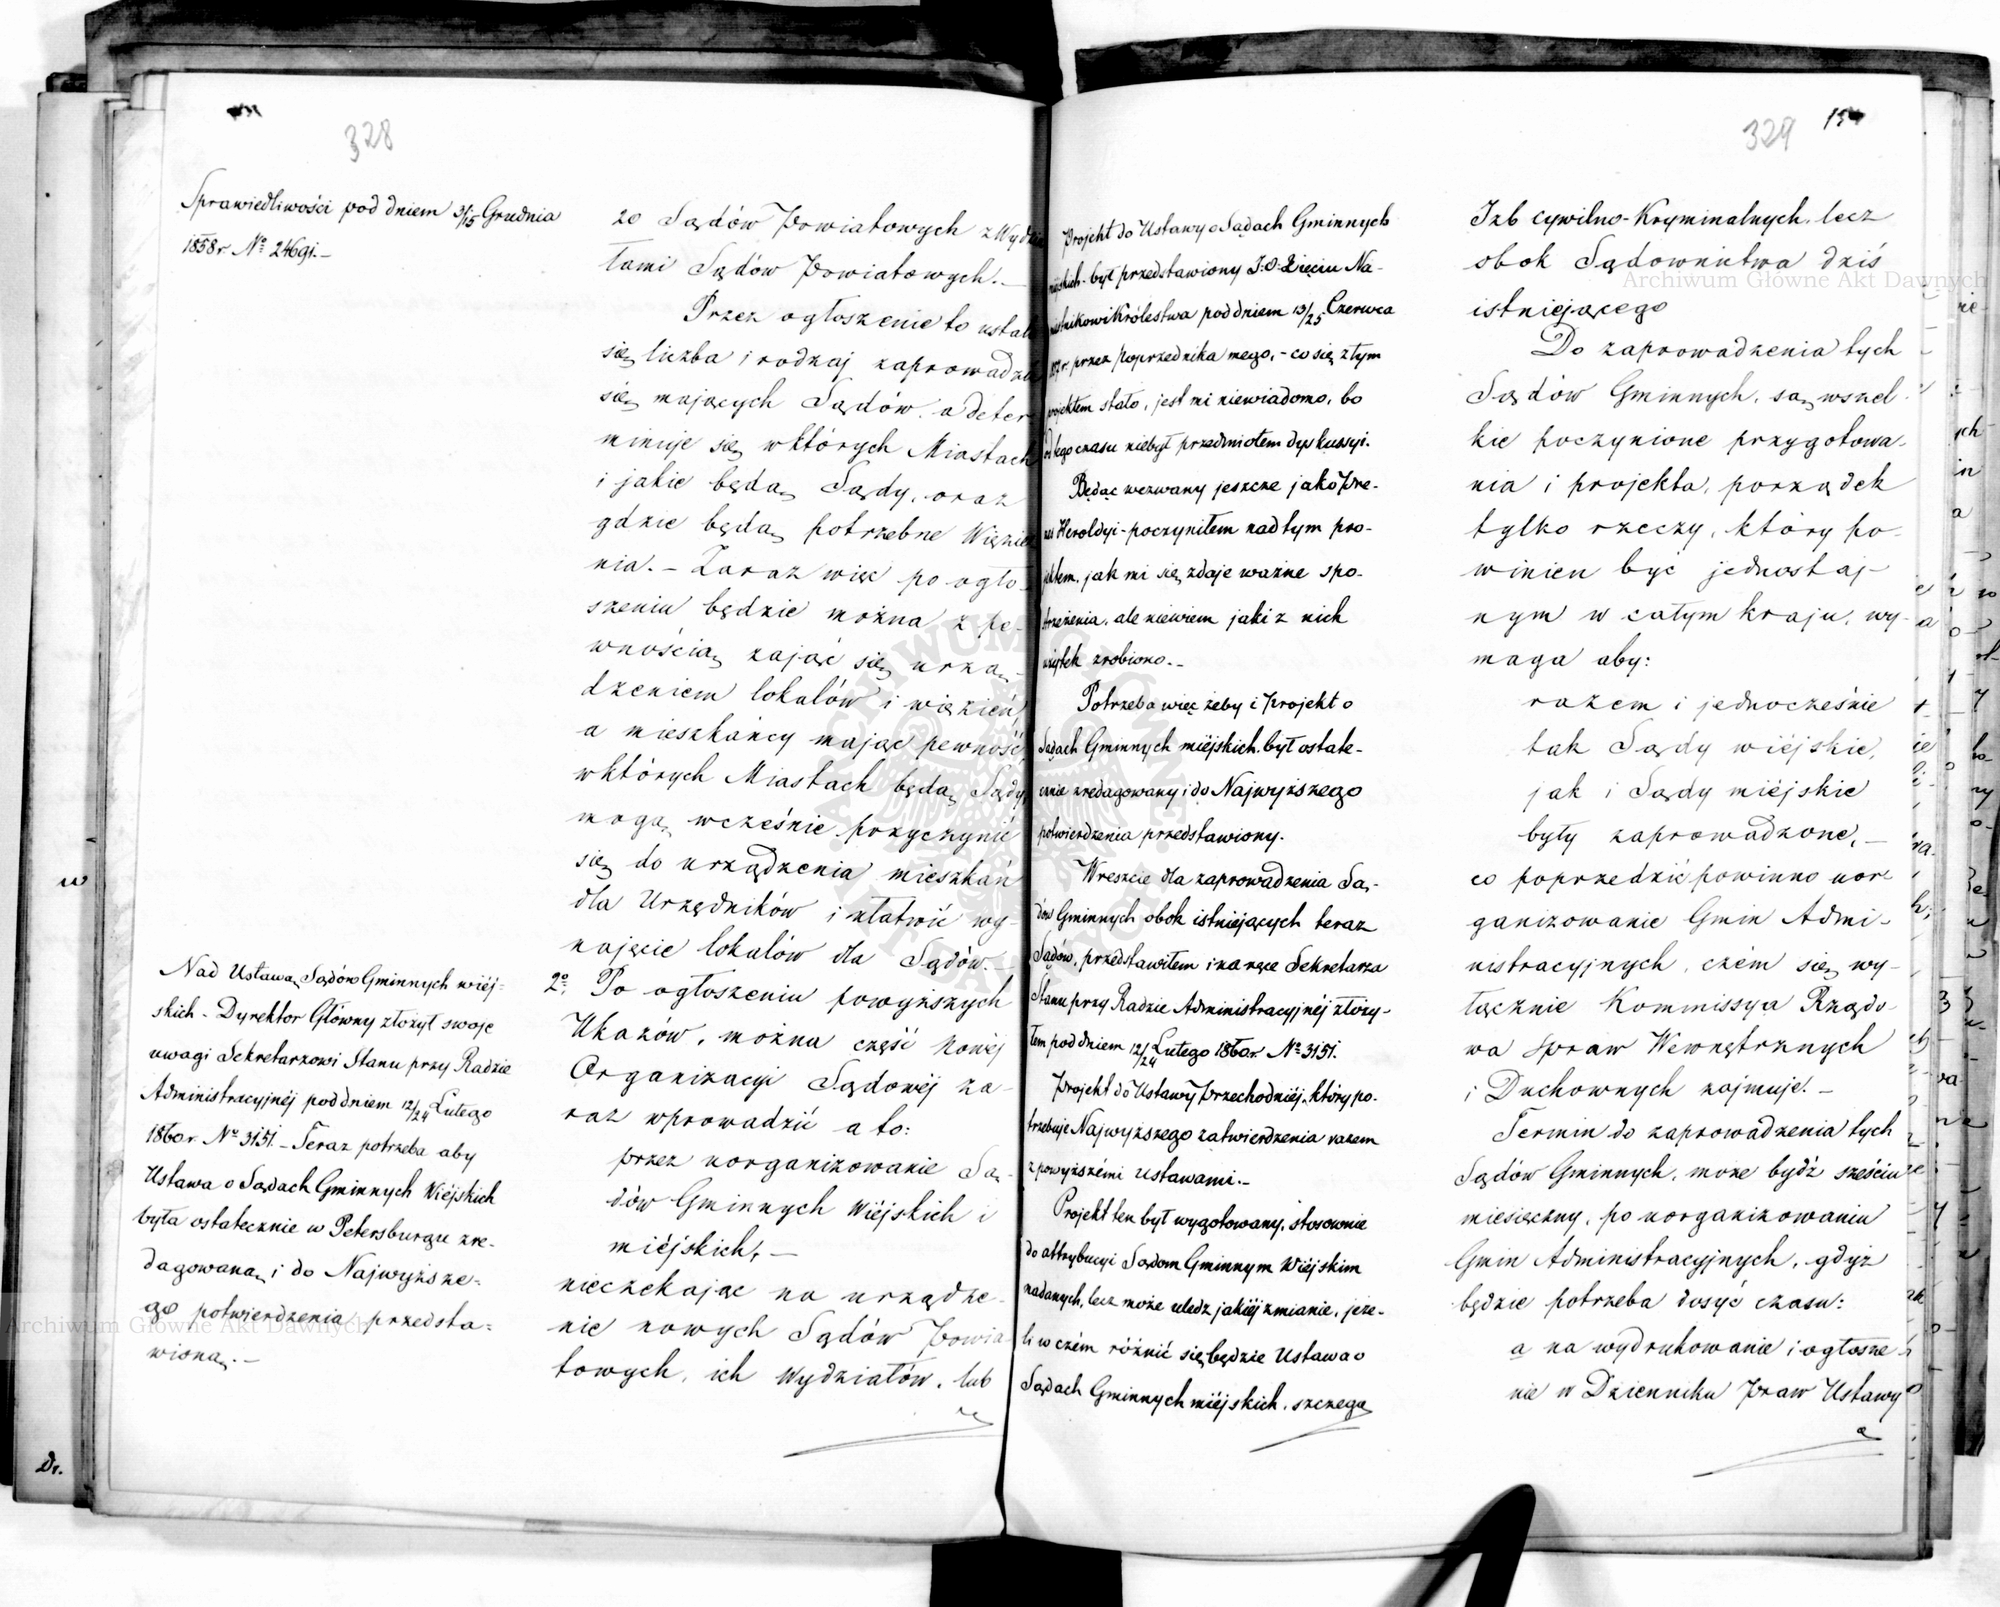 328
Sprawiedliwości pod dniem 3/15 Grudnia
1858 r. Nº 24691. –
Nad Ustawą Sądów Gminnych wiéj=
skich – Dyrektor Główny złożył swoje
uwagi Sekretarzowi Stanu przy Radzie
Administracyjnéj pod dniem 12/24 Lutego
1860 r. Nº 3151. – Teraz potrzeba aby
Ustawa o Sądach Gminnych Wiéjskich
była ostatecznie w Petersburgu zre-
dagowaną i do Najwyższe=
go potwierdzenia przedsta=
wioną. –
20 Sądów Powiatowych z Wydzia
łami Sądów Powiatowych. –
Przez ogłoszenie to ustali
się liczba i rodzaj zaprowadzić
się mających Sądów, a deter
minuje się w których Miastach
i jakie będą Sądy, oraz
gdzie będą potrzebne Więzie
nia. – Zaraz więc po ogło-
szeniu będzie można z pe-
wnością zająć się urzą
dzeniem lokalów i więzień,
a mieszkańcy mając pewność
w których Miastach będą Sądy,
mogą wcześnie przyczynić
się do urządzenia mieszkań
dla Urzędników i ułatwić wy-
najęcie lokalów dla Sądów. –
2º. Po ogłoszeniu powyższych
Ukazów, można część nowéj
Organizacyi Sądowéj za-
raz wprowadzić a to:
przez uorganizowanie Są-
dów Gminnych Wiéjskich i
miéjskich, –
nieczekając na urządze-
nie nowych Sądów Powia
towych, ich Wydziałów, lub
329
154
Projekt do Ustawy o Sądach Gminnych
miéjskich – był przedstawiony J: O: Xięciu Na-
miestnikowi Królestwa pod dniem 13/25 Czerwca
przez Poprzednika mego, – co się z tym
projektem stało, jest mi niewiadomo, bo
od tego czasu niebył przedmiotem dyskussyi.
Będąc wezwany jeszcze jako Pre-
zes Heroldyi – poczyniłem nad tym pro-
jektem, jak mi się zdaje ważne spo-
strzeżenia, ale niewiem jaki z nich
użytek zrobiono. –
Potrzeba więc żeby i Projekt o
Sądach Gminnych miéjskich, był ostate-
cznie zredagowany i do Najwyższego
potwierdzenia przedstawiony.
Wreszcie dla zaprowadzenia Są-
dów Gminnych obok istniejących teraz
Sądów, przedstawiłem i na ręce Sekretarza
Stanu przy Radzie Administracyjnéj złoży-
łem pod dniem 12/24 Lutego 1860 r. Nº 3151.
Projekt do Ustawy Przechodniéj, który po-
trzebuje Najwyższego zatwierdzenia razem
z powyższémi Ustawami. –
Projekt ten był wygotowany, stosownie
do attrybucyi Sądom Gminnym Wiéjskim
nadanych, lecz może uledz jakiéj zmianie, jeże-
li w czém różnić się będzie Ustawa o
Sądach Gminnych miéjskich, szczegó
Izb cywilno-Kryminalnych, lecz
obok Sądownictwa dziś
istniejącego
Do zaprowadzenia tych
Sądów Gminnych, są wszel
kie poczynione przygotowa-
nia i projekta, porządek
tylko rzeczy, który po-
winien być jednostaj-
nym w całym kraju, wy-
maga aby:
razem i jednocześnie
tak Sądy wiéjskie,
jak i Sądy miéjskie
były zaprowadzone, –
co poprzedzić powinno uor
ganizowanie Gmin Admi-
nistracyjnych, czém się wy-
łącznie Kommissya Rządo-
wa Spraw Wewnętrznych
i Duchownych zajmuje. –
Termin do zaprowadzenia tych
Sądów Gminnych, może bydź sześciu
miesięczny, po uorganizowaniu
Gmin Administracyjnych, gdyż
będzie potrzeba dosyć czasu:
a na wydrukowanie i ogłosze
nie w Dzienniku Praw Ustawy
Archiwum Główne Akt Dawnych
Archiwum Główne Akt Dawnych